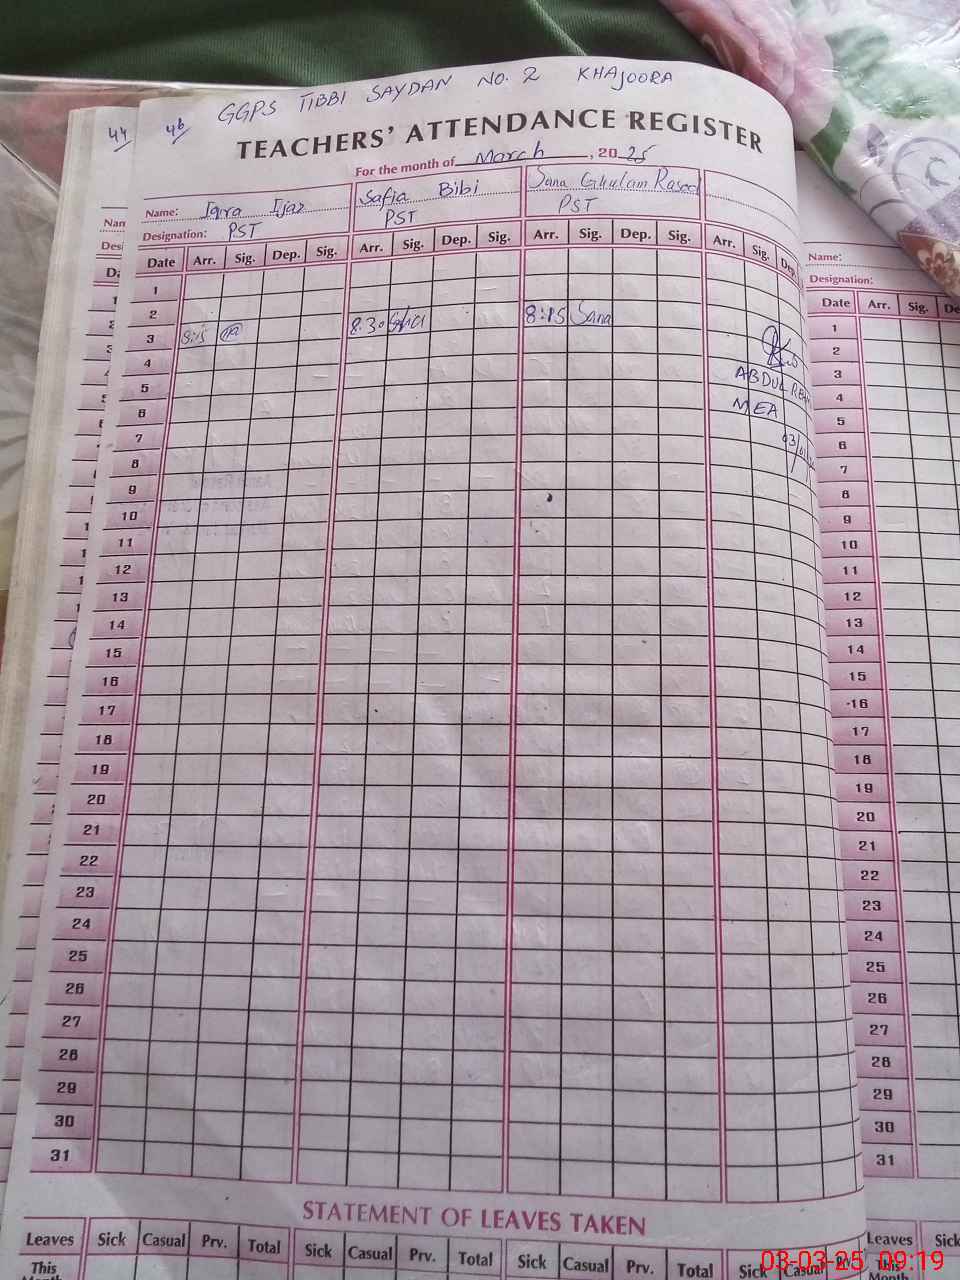 GGPS TIBBI SAYDAN NO. 2 KHAJOORA
44 46
TEACHERS' ATTENDANCE REGISTER
For the month of March, 2025
Name: Iqra Ijaz Safia Bibi Sana Ghulam Rasool
Designation: PST PST PST
Date Arr. Sig. Dep. Sig. Arr. Sig. Dep. Sig. Arr. Sig. Dep. Sig. Arr. Sig. Dep.
1
2
3 8:15 8:30 Safia 8:15 Sana
4
5 ABDUL
6 MEA
7
8
9
10
11
12
13
14
15
16
17
18
19
20
21
22
23
24
25
26
27
28
29
30
31
STATEMENT OF LEAVES TAKEN
Leaves Sick Casual Prv. Total Sick Casual Prv. Total Sick Casual Prv. Total Sick Casual Prv.
This
Month
Name:
Designation:
Date Arr. Sig.
1
2
3
4
5
6
7
8
9
10
11
12
13
14
15
16
17
18
19
20
21
22
23
24
25
26
27
28
29
30
31
Leaves Sick
This
Month
03-03-25 09:19